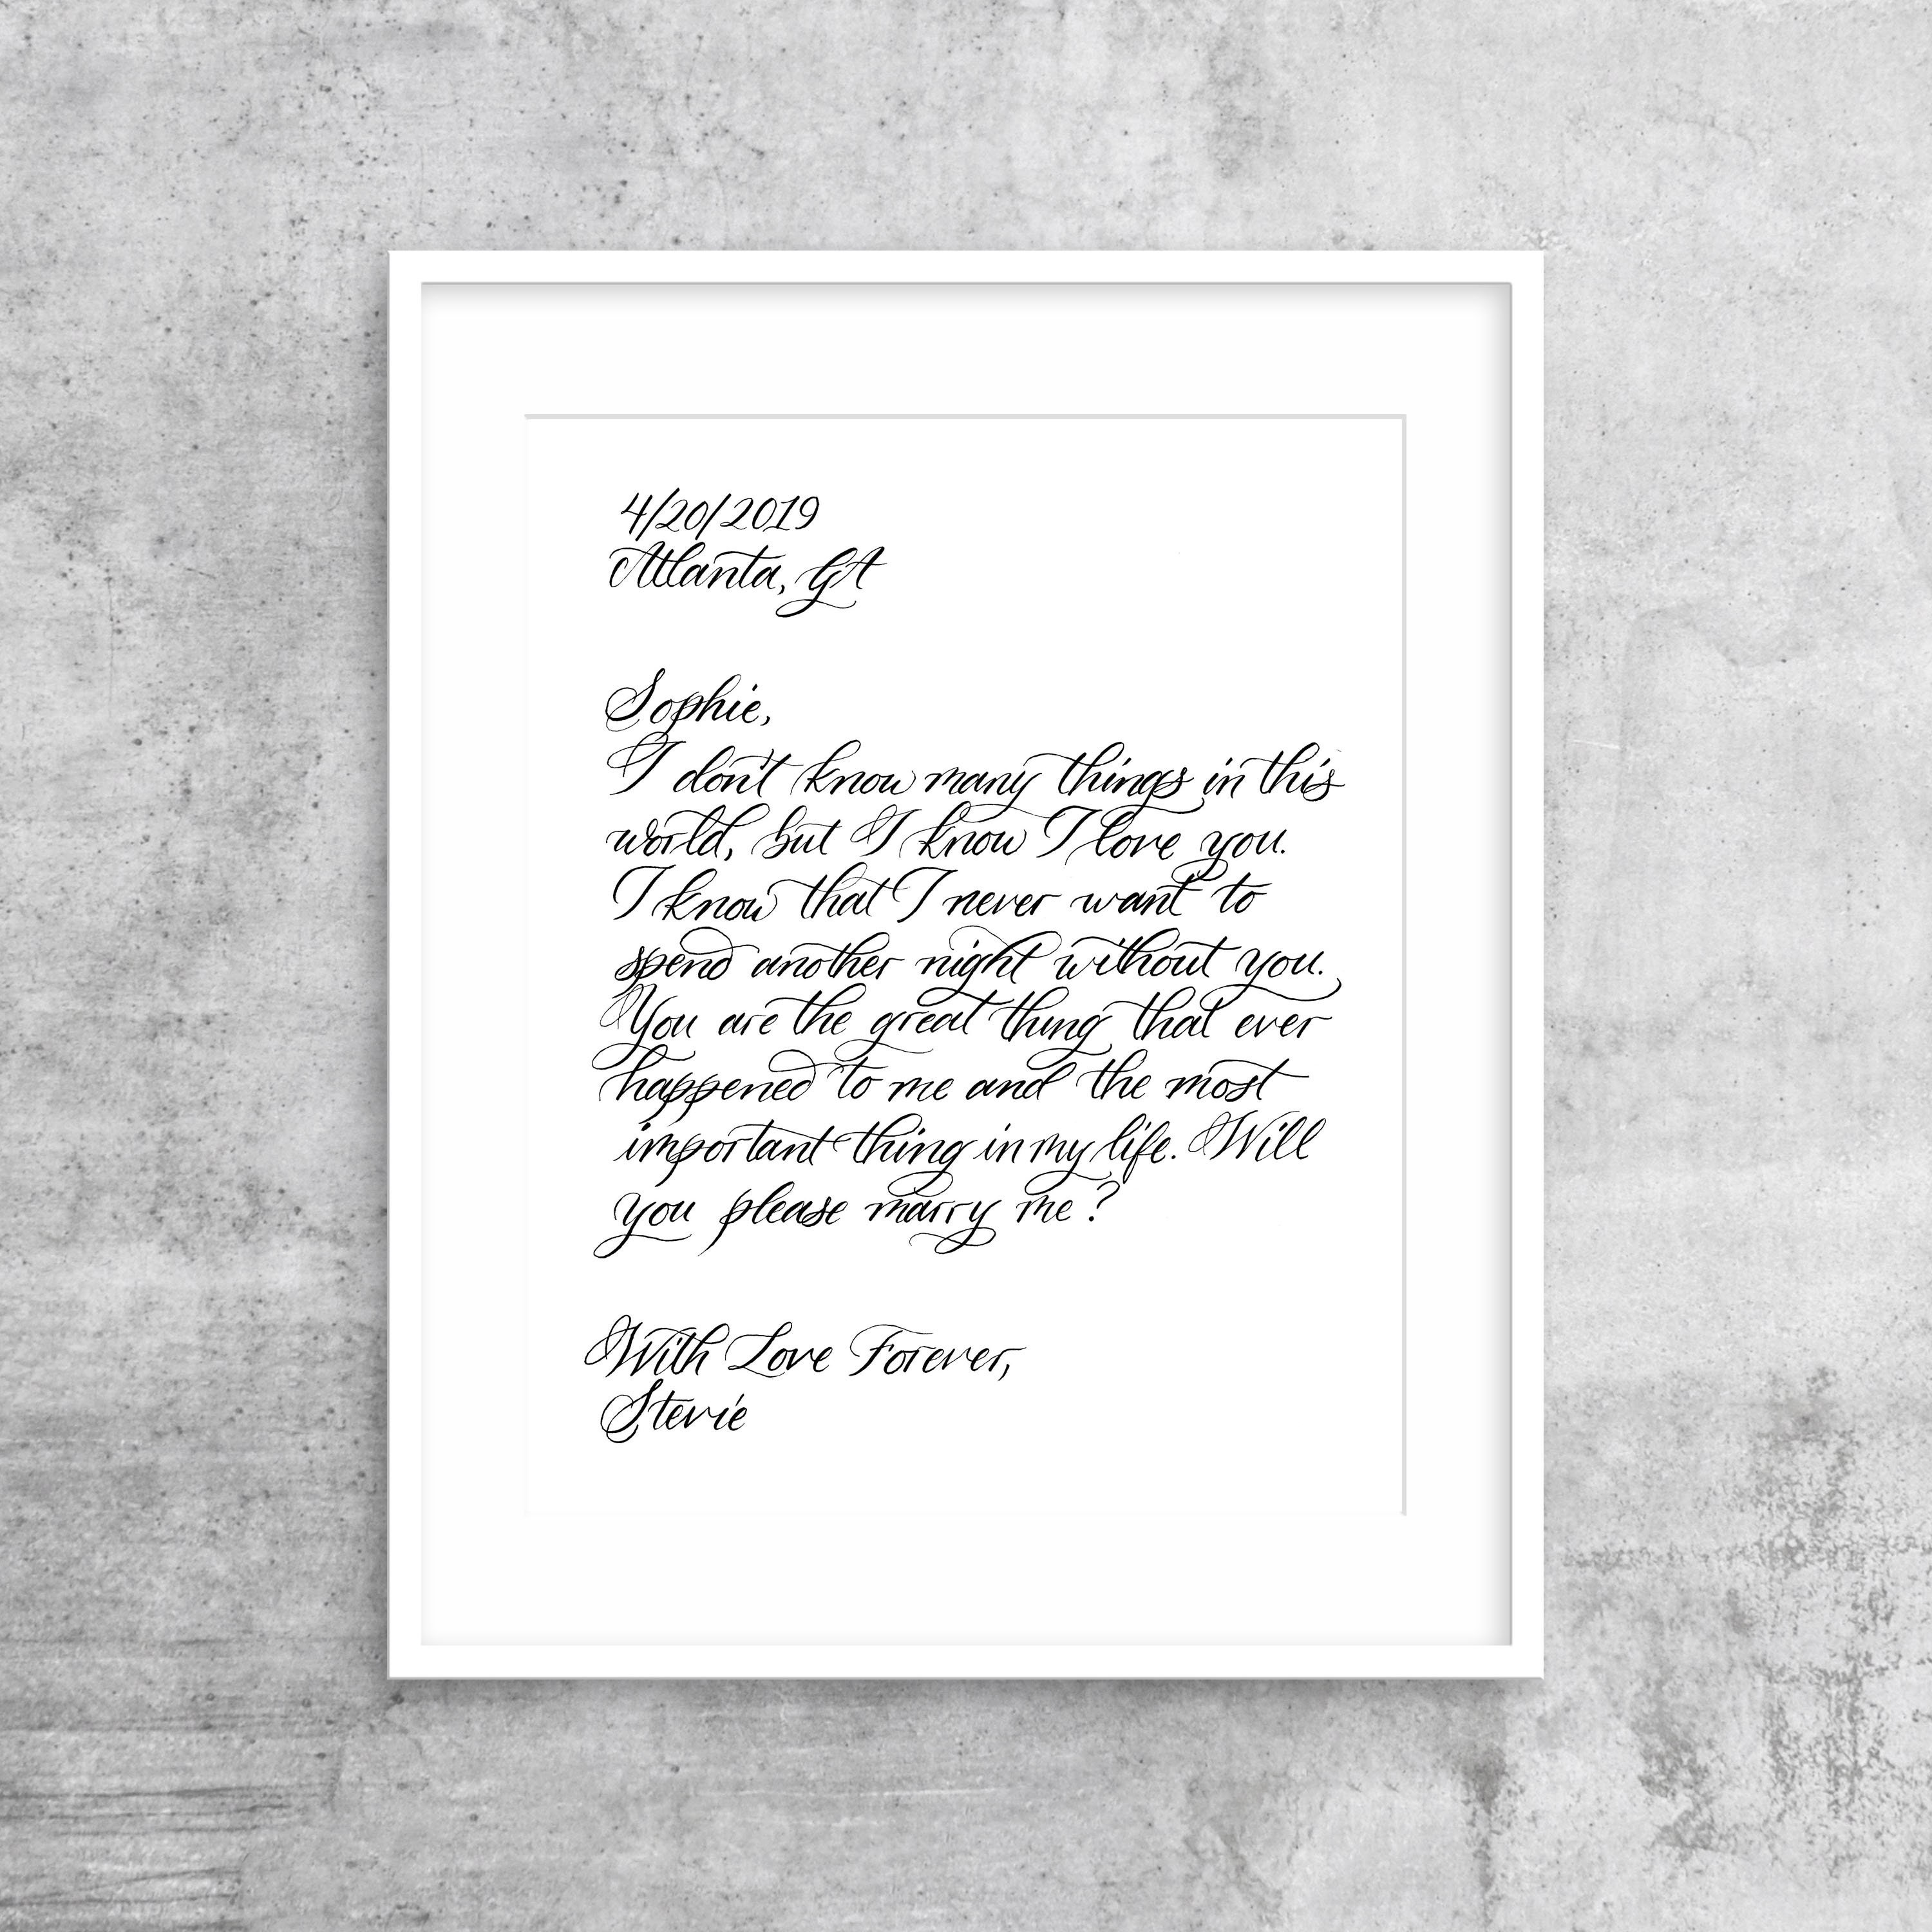 4/20/2019
Atlanta, GA
Sophie,
I don't know many things in this
world, but I know I love you.
I know that I never want to
spend another night without you.
You are the great thing that ever
happened to me and the most
important thing in my life. Will
you please marry me?
With Love Forever,
Stevie